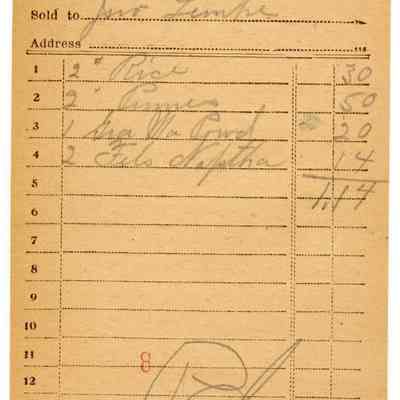 Sold to Jno Lemke
Address
1 2" Rice 30
2 2" Prunes 50
3 1 Wa Powd 20
4 2 Fels Naptha 14
5 1.14
6
7
8
9
10
11 8
12 Pd